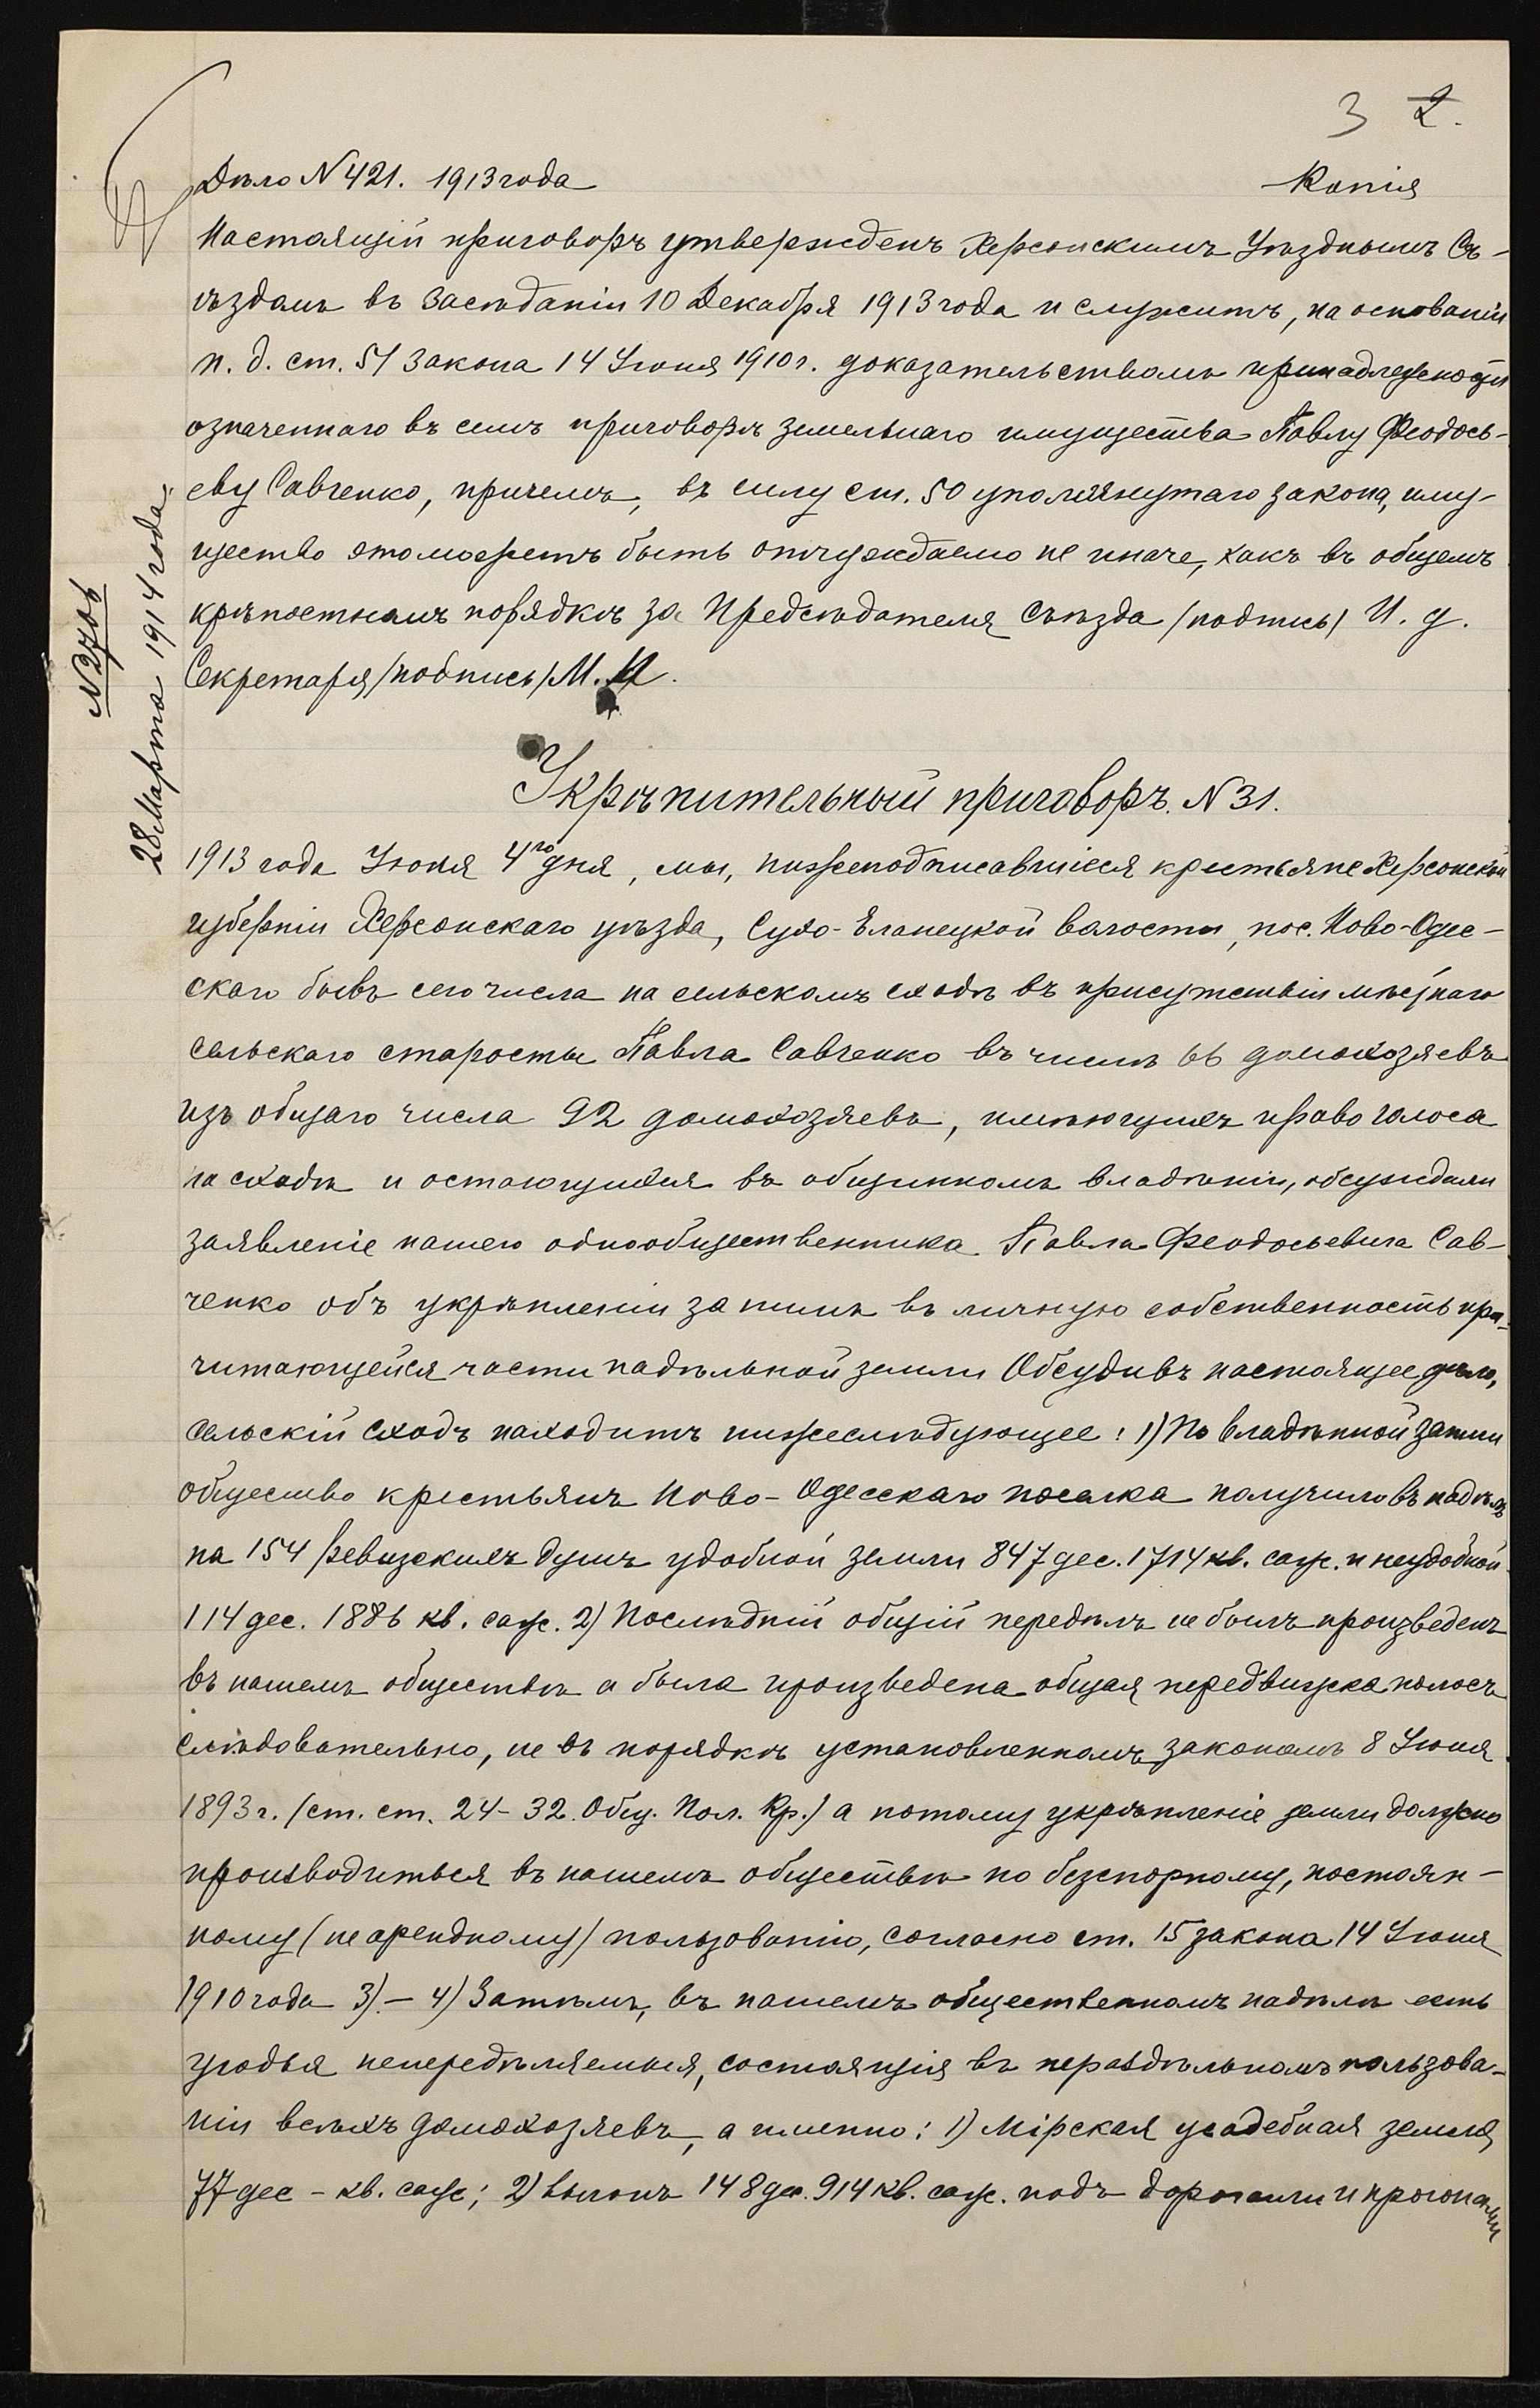 3 2.
Дѣло N 421. 1913 года
Копія
Настоящій приговоръ утвержденъ Херсонскимъ Уѣзднымъ Съ-
ѣздомъ въ засѣданіи 10 Декабря 1913 года и служитъ, на основаніи
п. д. ст. 51 Закона 14 Іюня 1910 г. доказательствомъ принадлежности
означеннаго въ семъ приговорѣ земельнаго имущества Павлу Феодось-
еву Савченко, причемъ, въ силу ст. 50 упомянутаго закона, иму-
щество это можетъ быть отчуждаемо не иначе, какъ въ общемъ
крѣпостномъ порядкѣ за Предсѣдателя Съѣзда /подпись/ И. д.
Секретаря /подпись/ М. П.
N 2706
28 Марта 1914 года
Укрѣпительный приговоръ. N 31.
1913 года Іюня 4го дня, мы, нижеподписавшіеся крестьяне Херсонской
губерніи Херсонскаго уѣзда, Сухо-Еланецкой волости, пос. Ново-Одес-
скаго бывъ сего числа на сельскомъ сходѣ въ присутствіи мѣстнаго
сельскаго старосты Павла Савченко въ числѣ 66 домохозяевъ
изъ общаго числа 92 домохозяевъ, имѣющихъ право голоса
на сходѣ и остающихся въ общинномъ владѣніи, обсуждали
заявленіе нашего однообщественника Павла Феодосьевича Сав-
ченко объ укрѣпленіи за нимъ въ личную собственность при-
читающейся части надѣльной земли Обсудивъ настоящее дѣло,
сельскій сходъ находитъ нижеслѣдующее: 1) По владѣнной записи
общество крестьянъ Ново-Одесскаго поселка получило въ надѣлъ
на 154 ревизскихъ душъ удобной земли 847 дес. 1714 кв. саж. и неудобной
114 дес. 1886 кв. саж. 2) Послѣдній общій передѣлъ не былъ произведенъ
въ нашемъ обществѣ а была произведена общая передвижка полосъ
слѣдовательно, не въ порядкѣ установленномъ закономъ 8 Іюня
1893 г. /ст. ст. 24-32. Общ. Пол. Кр./ а потому укрѣпленіе земли должно
производиться въ нашемъ обществѣ по безспорному, постоян-
ному (не арендному) пользованію, согласно ст. 15 закона 14 Іюня
1910 года 3).- 4) Затѣмъ, въ нашемъ общественномъ надѣлѣ есть
угодья непередѣляемыя, состоящія въ нераздѣльномъ пользова-
ніи всѣхъ домохозяевъ, а именно: 1) Мірская усадебная земля
77 дес - кв. саж; 2) выгонъ 148 дес. 914 кв. саж. подъ дорогами и прогонами